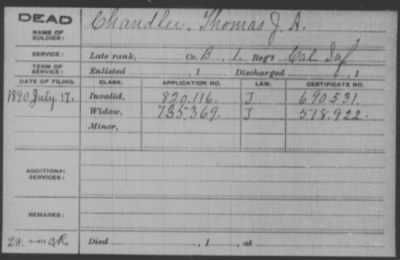 DEAD
NAME OF SOLDIER: Chandler, Thomas J. A.
SERVICE: Late rank, Co. B, 1. Reg't Cal Inf
TERM OF SERVICE: Enlisted , 1 Discharged , 1
DATE OF FILING. CLASS. APPLICATION NO. LAW. CERTIFICATE NO.
1890 July 17. Invalid, 820.116. J 690.531.
Widow, 735.369. J 518.922.
Minor,
ADDITIONAL SERVICES:
REMARKS:
Died , 1 , at